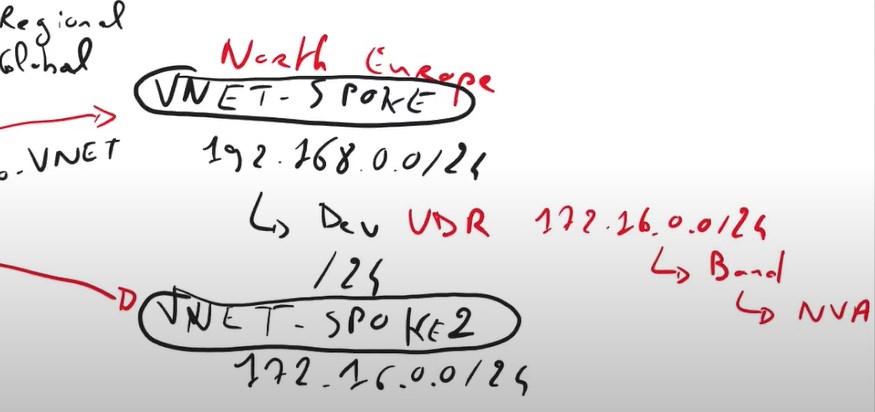 Regional
Global
North Europe
VNET-SPOKE
o-VNET
192.168.0.0/24
↳ Dev UDR 172.16.0.0/24
/24
↳ Band
↳ NVA
VNET-SPOKE2
172.16.0.0/24